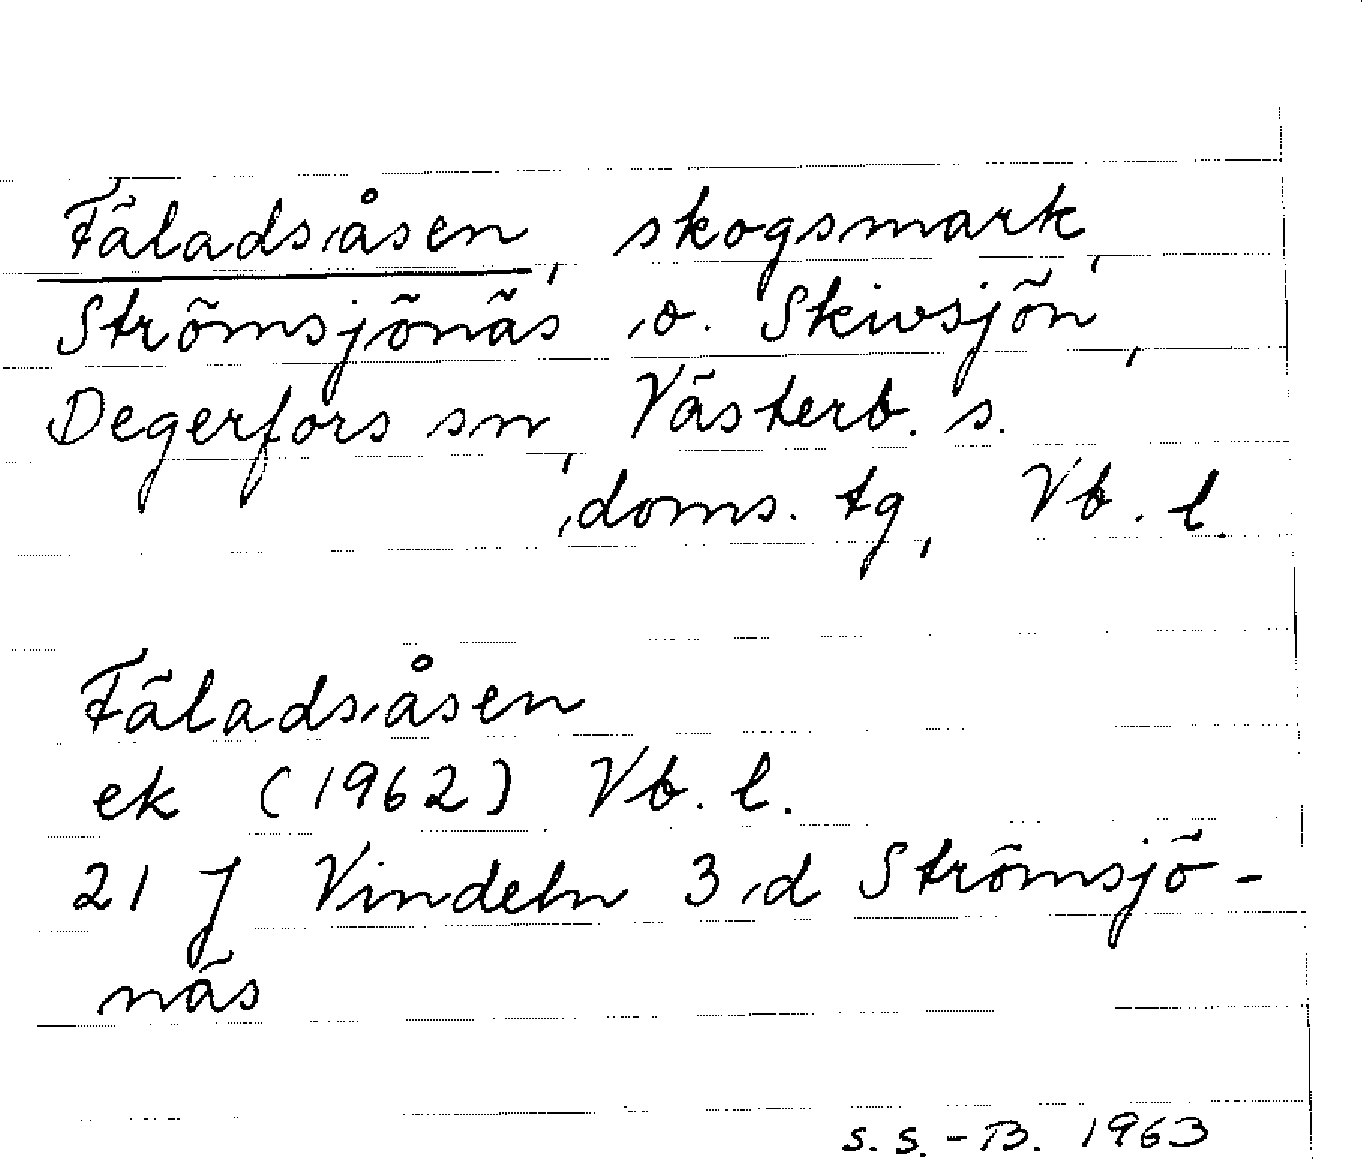 Fäladsåsen, skogsmark,
Strömsjönäs o. Skivsjön,
Degerfors sn, Västerb. s.
doms. tg, Vb. l.
Fäladsåsen
ek (1962) Vb. l.
21 J Vindeln 3 d Strömsjö-
näs
S. S. - B. 1963